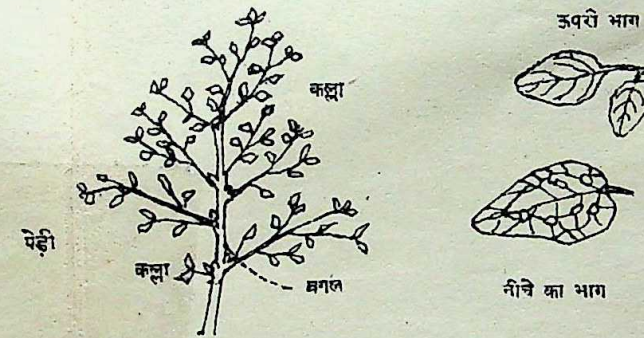 ऊपरी भाग
कल्ला
पेड़ी
कल्ला
बगल
नीचे का भाग